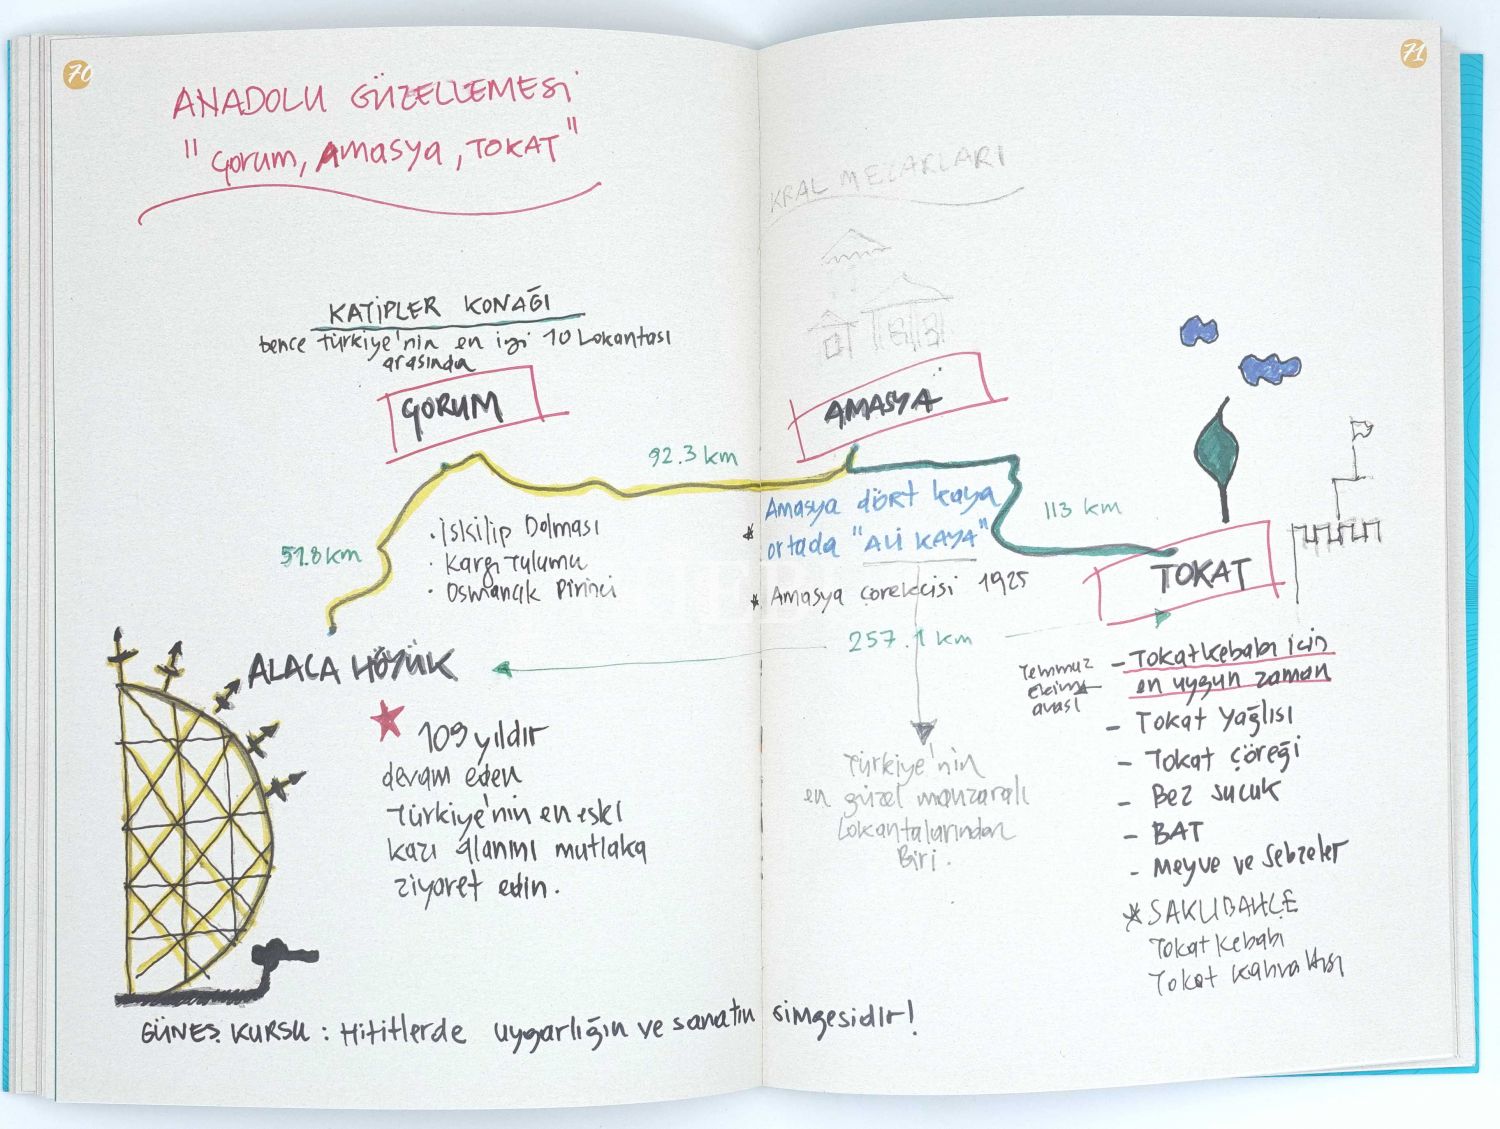 70
71
ANADOLU GÜZELLEMESİ
"Çorum, Amasya, TOKAT"
KRAL MEZARLARI
KATİPLER KONAĞI
bence Türkiye'nin en iyi 10 Lokantası
arasında
ÇORUM
AMASYA
92.3 km
113 km
51.8 km
· İskilip Dolması
· Kargı Tulumu
· Osmancık Pirinci
* Amasya dört kaya
ortada "ALİ KAYA"
* Amasya Çorekcisi 1925
TOKAT
257.1 km
ALACA HÖYÜK
109 yıldır
devam eden
Türkiye'nin en eski
kazı alanını mutlaka
ziyaret edin.
Türkiye'nin
en güzel manzaralı
Lokantalarından
Biri.
Temmuz
Ekim
arası
- Tokat kebabı için
en uygun zaman
- Tokat Yağlısı
- Tokat çöreği
- Bez sucuk
- BAT
- Meyve ve Sebzeler
* SAKLIBAHÇE
Tokat kebabı
Tokat kahvaltısı
GÜNEŞ KURSU : Hititlerde uygarlığın ve sanatın simgesidir!